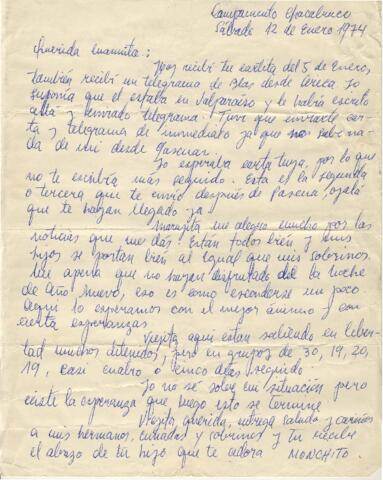 Campamento Chacabuco
Sábado 12 de Enero 1974
Querida mamita:
Hoy recibí tu cartita del 5 de Enero,
también recibí un telegrama de Blas desde Arica. Yo
suponía que él estaba en Valparaíso y le había escrito
allá y enviado telegrama. Tuve que enviarle car-
ta y telegrama de inmediato ya que no sabe na-
da de mí desde Pascua.
Yo esperaba carta tuya, por lo que
no te escribía más seguido. Esta es la segunda
o tercera que te envío después de Pascua, ojalá
que te hayan llegado ya
Mamita me alegro mucho por las
noticias que me das! Están todos bien, y mis
hijos se portan bien al igual que mis sobrinos.
Me apena que no hayan disfrutado de la Noche
de Año Nuevo, eso es como esconderse un poco
Aquí lo esperamos con el mejor ánimo y con
cierta esperanzas
Viejita aquí están saliendo en liber-
tad muchos detenidos, pero en grupos de 30, 19, 20,
19, casi cuatro o cinco días seguido
Yo no sé sobre mi situación pero
existe la esperanza que luego esto se termine
Viejita querida, entrega saludos y cariños
a mis hermanos, cuñadas y sobrinos y tu recibe
el abrazo de tu hijo que te adora MONCHITO.